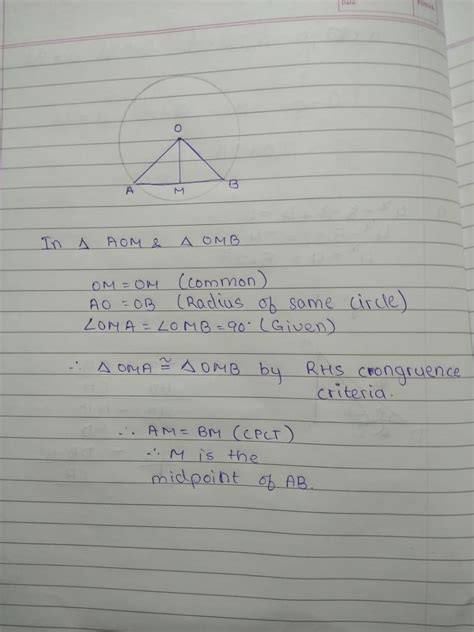 Date
O
A M B
In △ AOM & △ OMB
OM = OM (common)
AO = OB (Radius of same circle)
∠OMA = ∠OMB = 90° (Given)
∴ △ OMA ≅ △ OMB by RHS crongruence
criteria.
∴ AM = BM (CPCT)
∴ M is the
midpoint of AB.